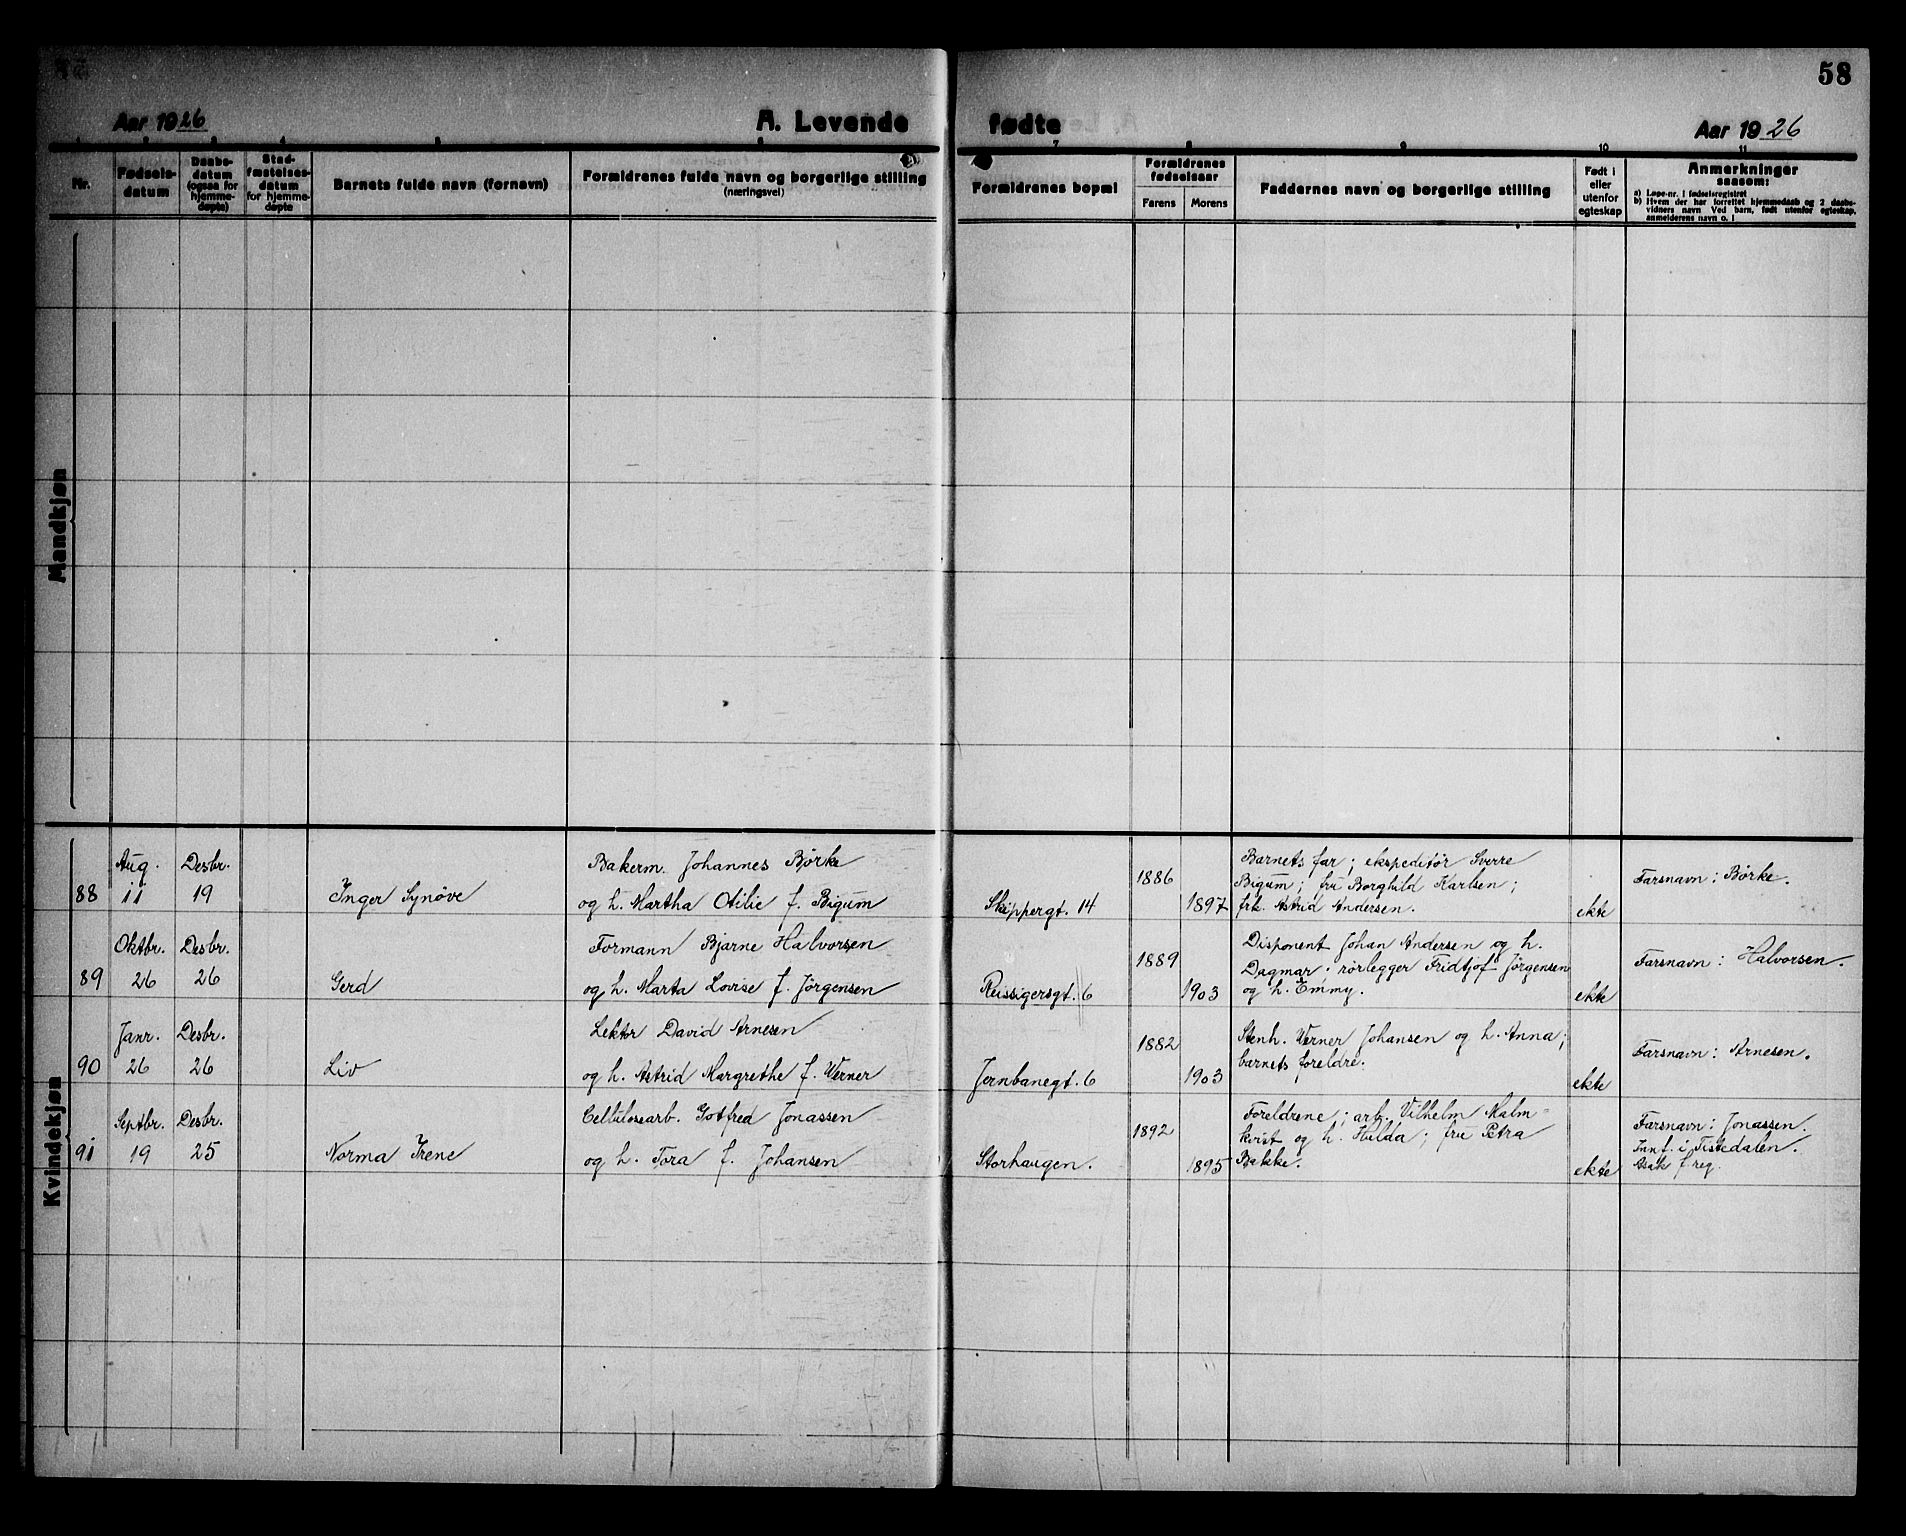 58
Aar 1926
A. Levende fødte
Aar 1926
Nr.
Fødselsdatum
Daabsdatum (ogsaa for hjemmedøpte)
Stadfæstelsesdatum for hjemmedøpte
Barnets fulde navn (fornavn)
Forældrenes fulde navn og borgerlige stilling
(næringsvei)
7
8
9
10
11
Forældrenes bopæl
Forældrenes fødselsaar
Farens
Morens
Faddernes navn og borgerlige stilling
Født i eller utenfor egteskap
Anmerkninger
saasom:
a) Løpe-nr. i fødselsregistret
b) Hvem der har forrettet hjemmedaab og 2 daabsvidners navn Ved barn, født utenfor egteskap, anmelderens navn o. l
Mandkjøn
Kvindekjøn
88
Aug. 11
Desbr. 19
Inger Synøve
Bakerm. Johannes Børke
og h. Martha Otilie f. Bigum
Skippergt. 14
1886
1897
Barnets far; ekspeditør Sverre
Bigum; fru Borghild Karlsen;
frk. Astrid Andersen.
ekte
Farsnavn: Børke.
89
Oktbr. 26
Desbr. 26
Gerd
Formann Bjarne Halvorsen
og h. Marta Lovise f. Jörgensen
Reissigersgt. 6
1889
1903
Disponent Johan Andersen og h.
Dagmar; rörlegger Fridtjof Jörgensen
og h. Emmy.
ekte
Farsnavn: Halvorsen.
90
Janr. 26
Desbr. 26
Liv
Lektor David Arnesen
og h. Astrid Margrethe f. Werner
Jernbanegt. 6
1882
1903
Stenh. Werner Johansen og h. Anna;
barnets foreldre.
ekte
Farsnavn: Arnesen.
91
Septbr. 19
Desbr. 25
Norma Irene
Cellulosearb. Gotfred Jonassen
og h. Tora f. Johansen
Storhaugen.
1892
1895
Foreldrene; arb. Vilhelm Malm-
kvist og h. Hilda; fru Petra
Bakke.
ekte
Farsnavn: Jonassen.
Innf. i Tistedalen.
Asak f reg.